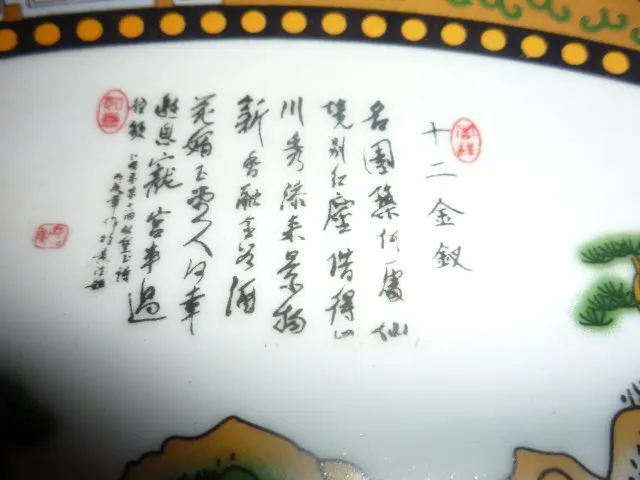 十二金釵
名園築何處仙
境別紅塵借得山
川秀添來景物
新香融金谷酒
花媚玉堂人何幸
邀恩寵宮車過
往頻